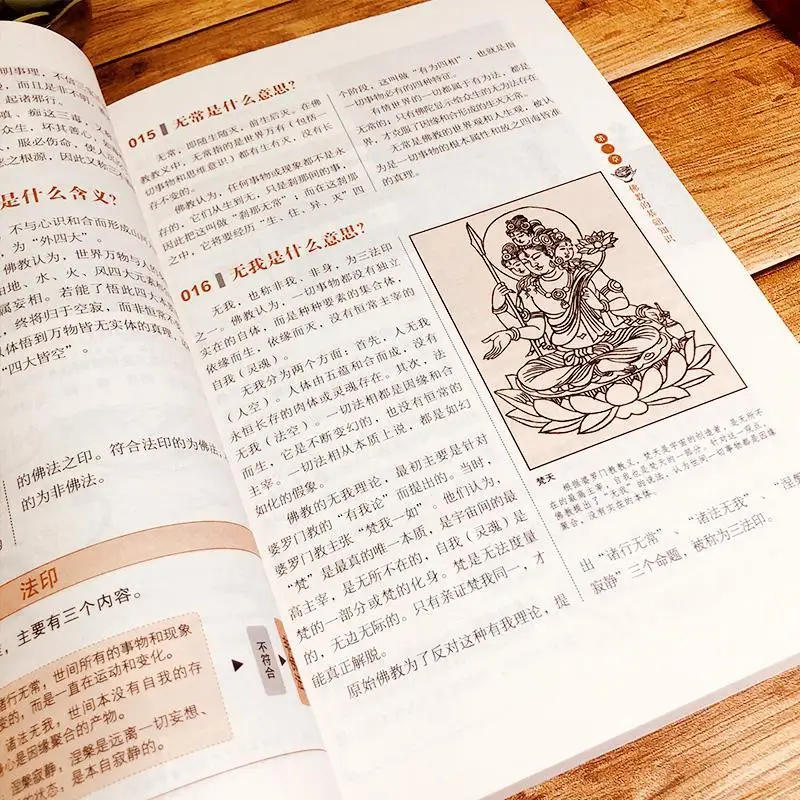 明事理,不信
而且是非不明,
起诸邪行。
嗔、痴这三毒,
众生,坏其善心,
服必伤命,使人
之根源,因此又称
是什么含义?
不与心识和合而形成山河
为“外四大”。
佛教认为,世界万物与人的
由地、水、火、风四大元素
属妄相。若能了悟此四大本
终将归于空寂,而非恒常
体悟到万物皆无实体的真理
“四大皆空”。
的佛法之印。符合法印的为佛法,
的为非佛法。
法印
主要有三个内容。
诸行无常,世间所有的事物和现象
变的,而是一直在运动和变化。
诸法无我,世间本没有自我的存
心是因缘聚合的产物。
涅槃寂静,涅槃是远离一切妄想、
的状态,是本自寂静的。
不符合
015 无常是什么意思?
无常,即随生随灭,前生后灭。在佛
教教义中,无常指的是世界万有(包括一
切事物和思维意识)都有生有灭,没有长
存不变的。
佛教认为,任何事物或现象都不是永
存的,它们从生到无,只是刹那间的事,
因此把这叫做“刹那无常”;而在这刹那
之中,它将要经历“生、住、异、灭”四
个阶段,这叫做“有为四相”,也就是指
一切事物必有的四种特征。
有情世界的一切都属于有为法,都是
无常的,只有佛陀显示给众生的无为法存在
界,才会脱了因缘和合形成的生灭无常。
无常是佛教的世界观和人生观,被认
为是一切事物的根本属性和放之四海皆准
的真理。
016 无我是什么意思?
无我,也称非我、非身,为三法印
之一。佛教认为,一切事物都没有独立
实在的自体,而是种种要素的集合体,
依缘而生,依缘而灭,没有恒常主宰的
自我(灵魂)。
无我分为两个方面:首先,人无我
(人空)。人体由五蕴和合而成,没有
永恒长存的肉体或灵魂存在。其次,法
无我(法空)。一切法相都是因缘和合
而生,它是不断变幻的,也没有恒常的
主宰。一切法相从本质上说,都是如幻
如化的假象。
佛教的无我理论,最初主要是针对
婆罗门教的“有我论”而提出的。当时,
婆罗门教主张“梵我一如”。他们认为,
“梵”是最真的唯一本质,是宇宙间的最
高主宰,是无所不在的,自我(灵魂)是
梵的一部分或梵的化身。梵是无法度量
的,无边无际的。只有亲证梵我同一,才
能真正解脱。
原始佛教为了反对这种有我理论,提
梵天
根据婆罗门教教义,梵天是宇宙的创造者,是无所不
在的最高主宰,自我也是梵天的一部分。针对这一观点,
佛教提出了“无我”的说法,认为世间一切事物都是因缘
聚合,没有实在的本体。
出“诸行无常”、“诸法无我”、“涅槃
寂静”三个命题,被称为三法印。
第一章
佛教的基础知识